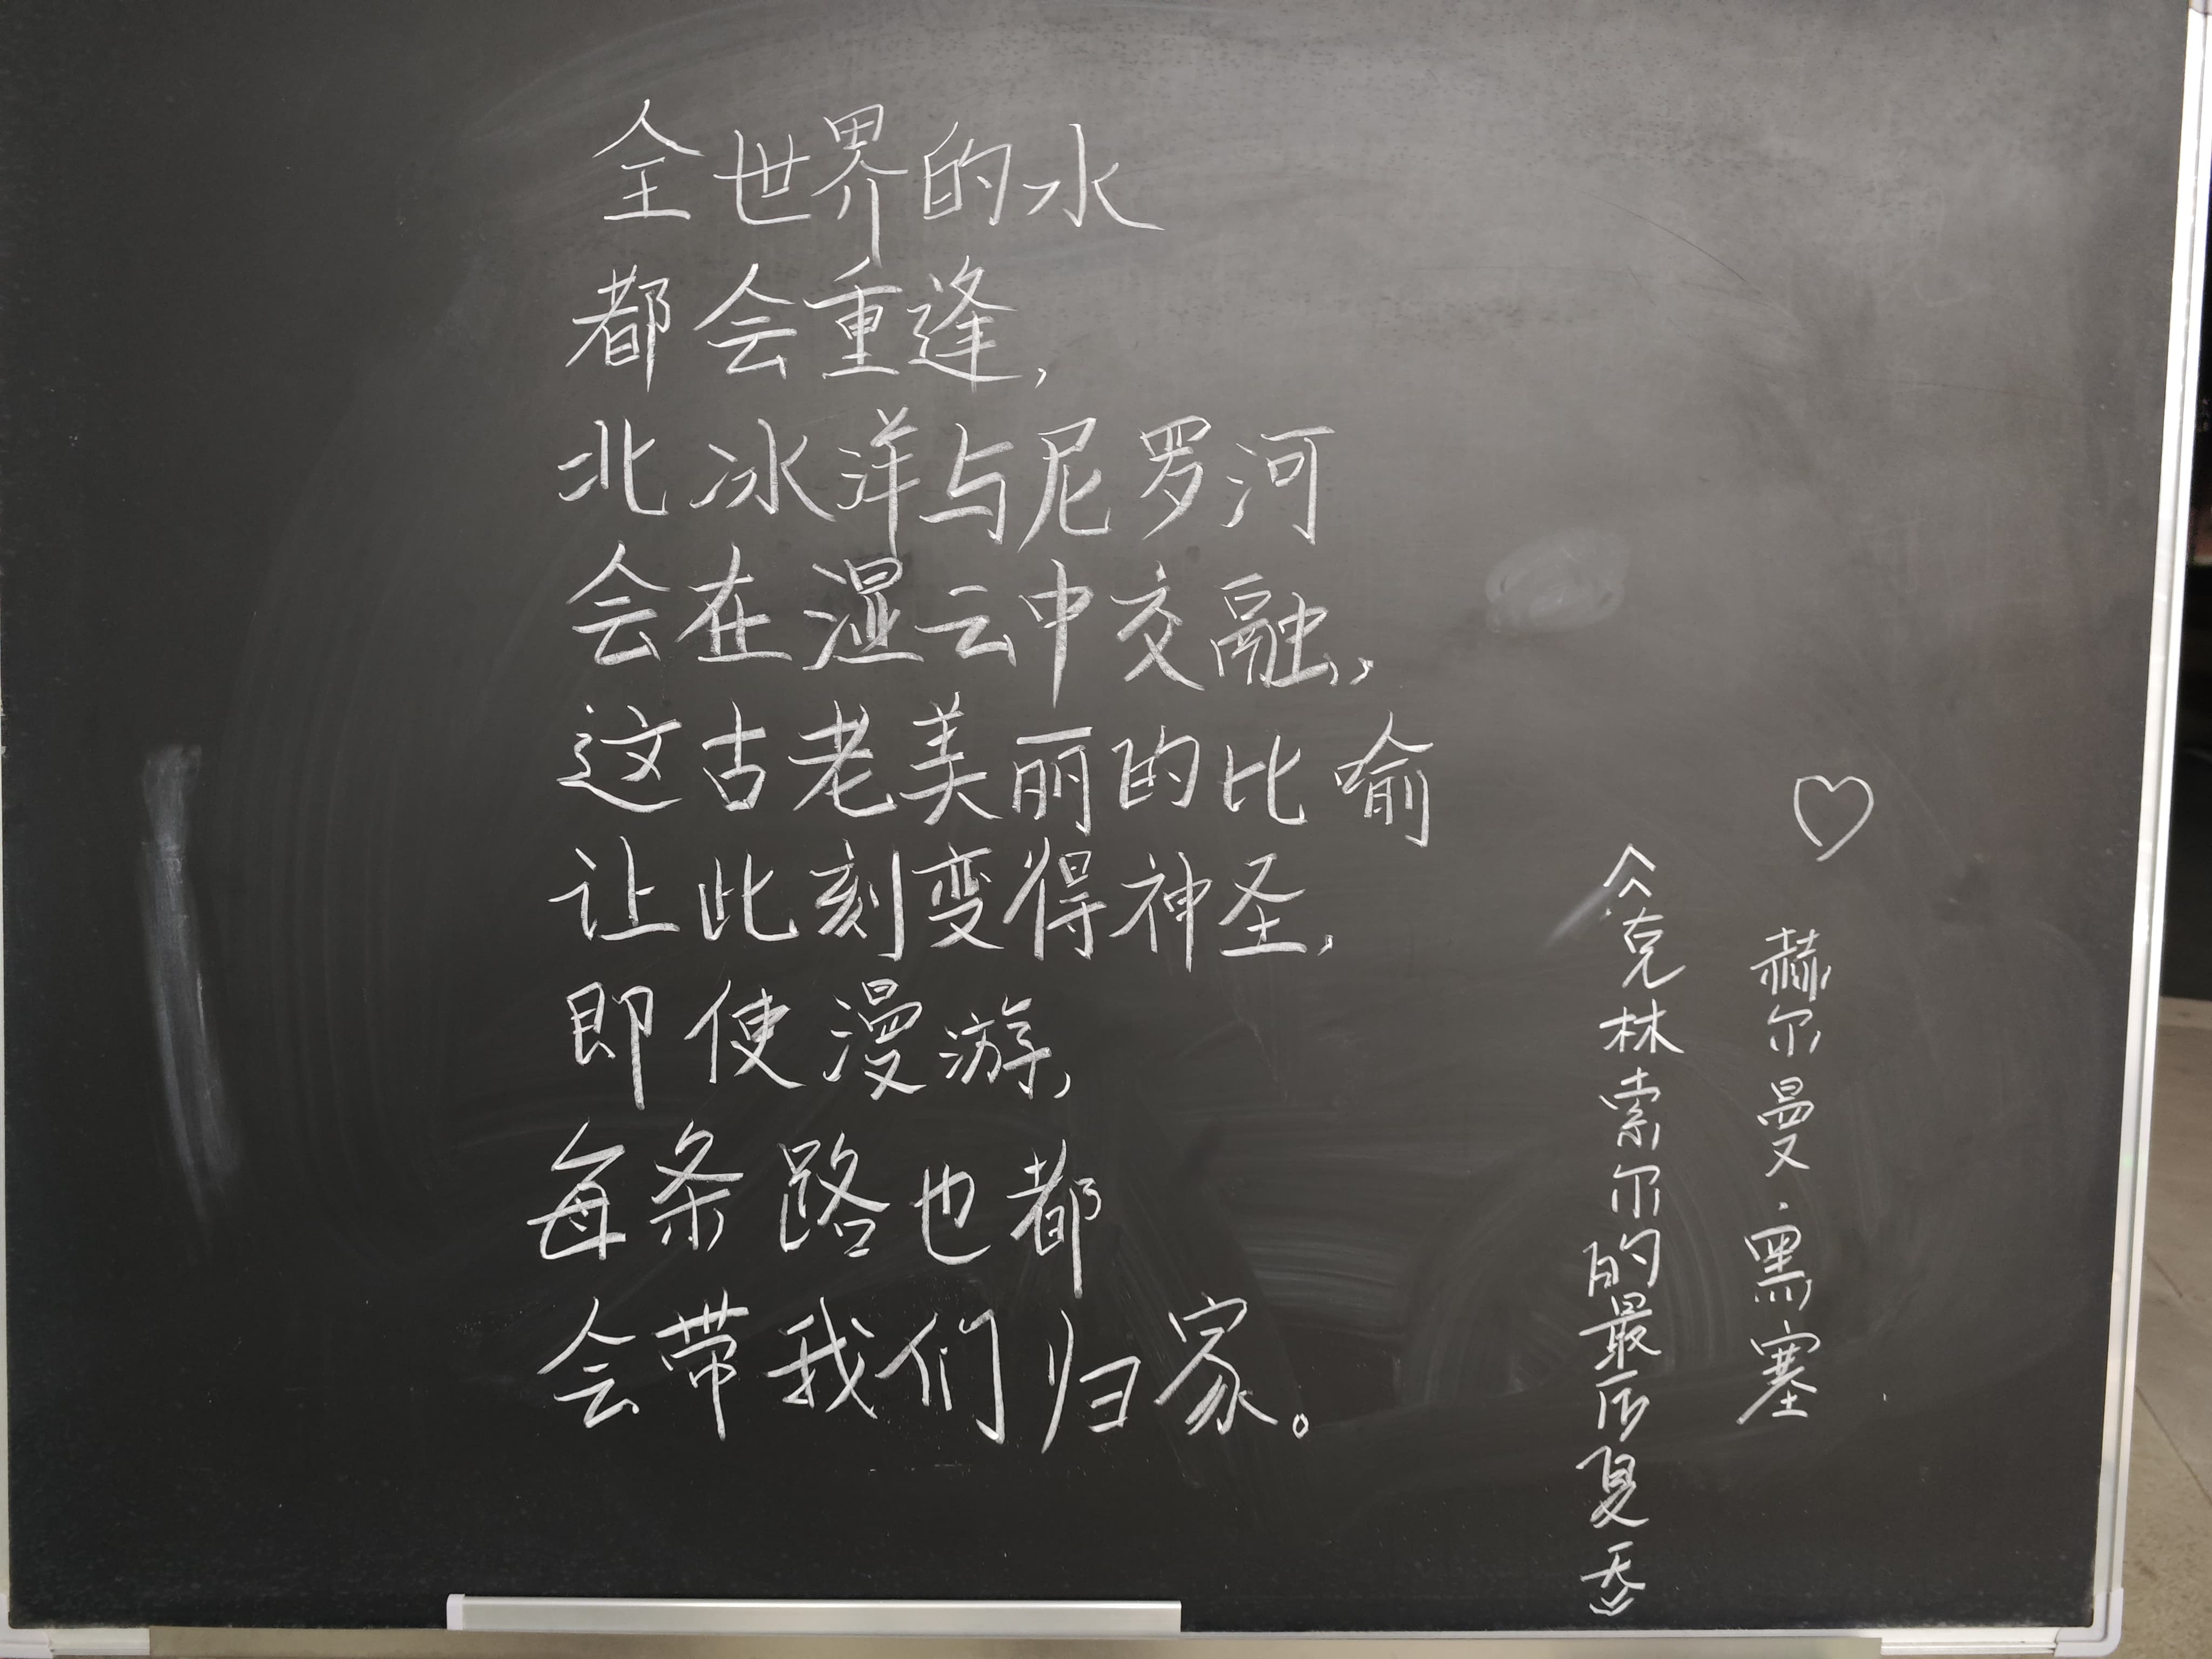 全世界的水
都会重逢,
北冰洋与尼罗河
会在湿云中交融,
这古老美丽的比喻
让此刻变得神圣,
即使漫游,
每条路也都
会带我们归家。
赫尔曼·黑塞
《克林索尔的最后夏天》